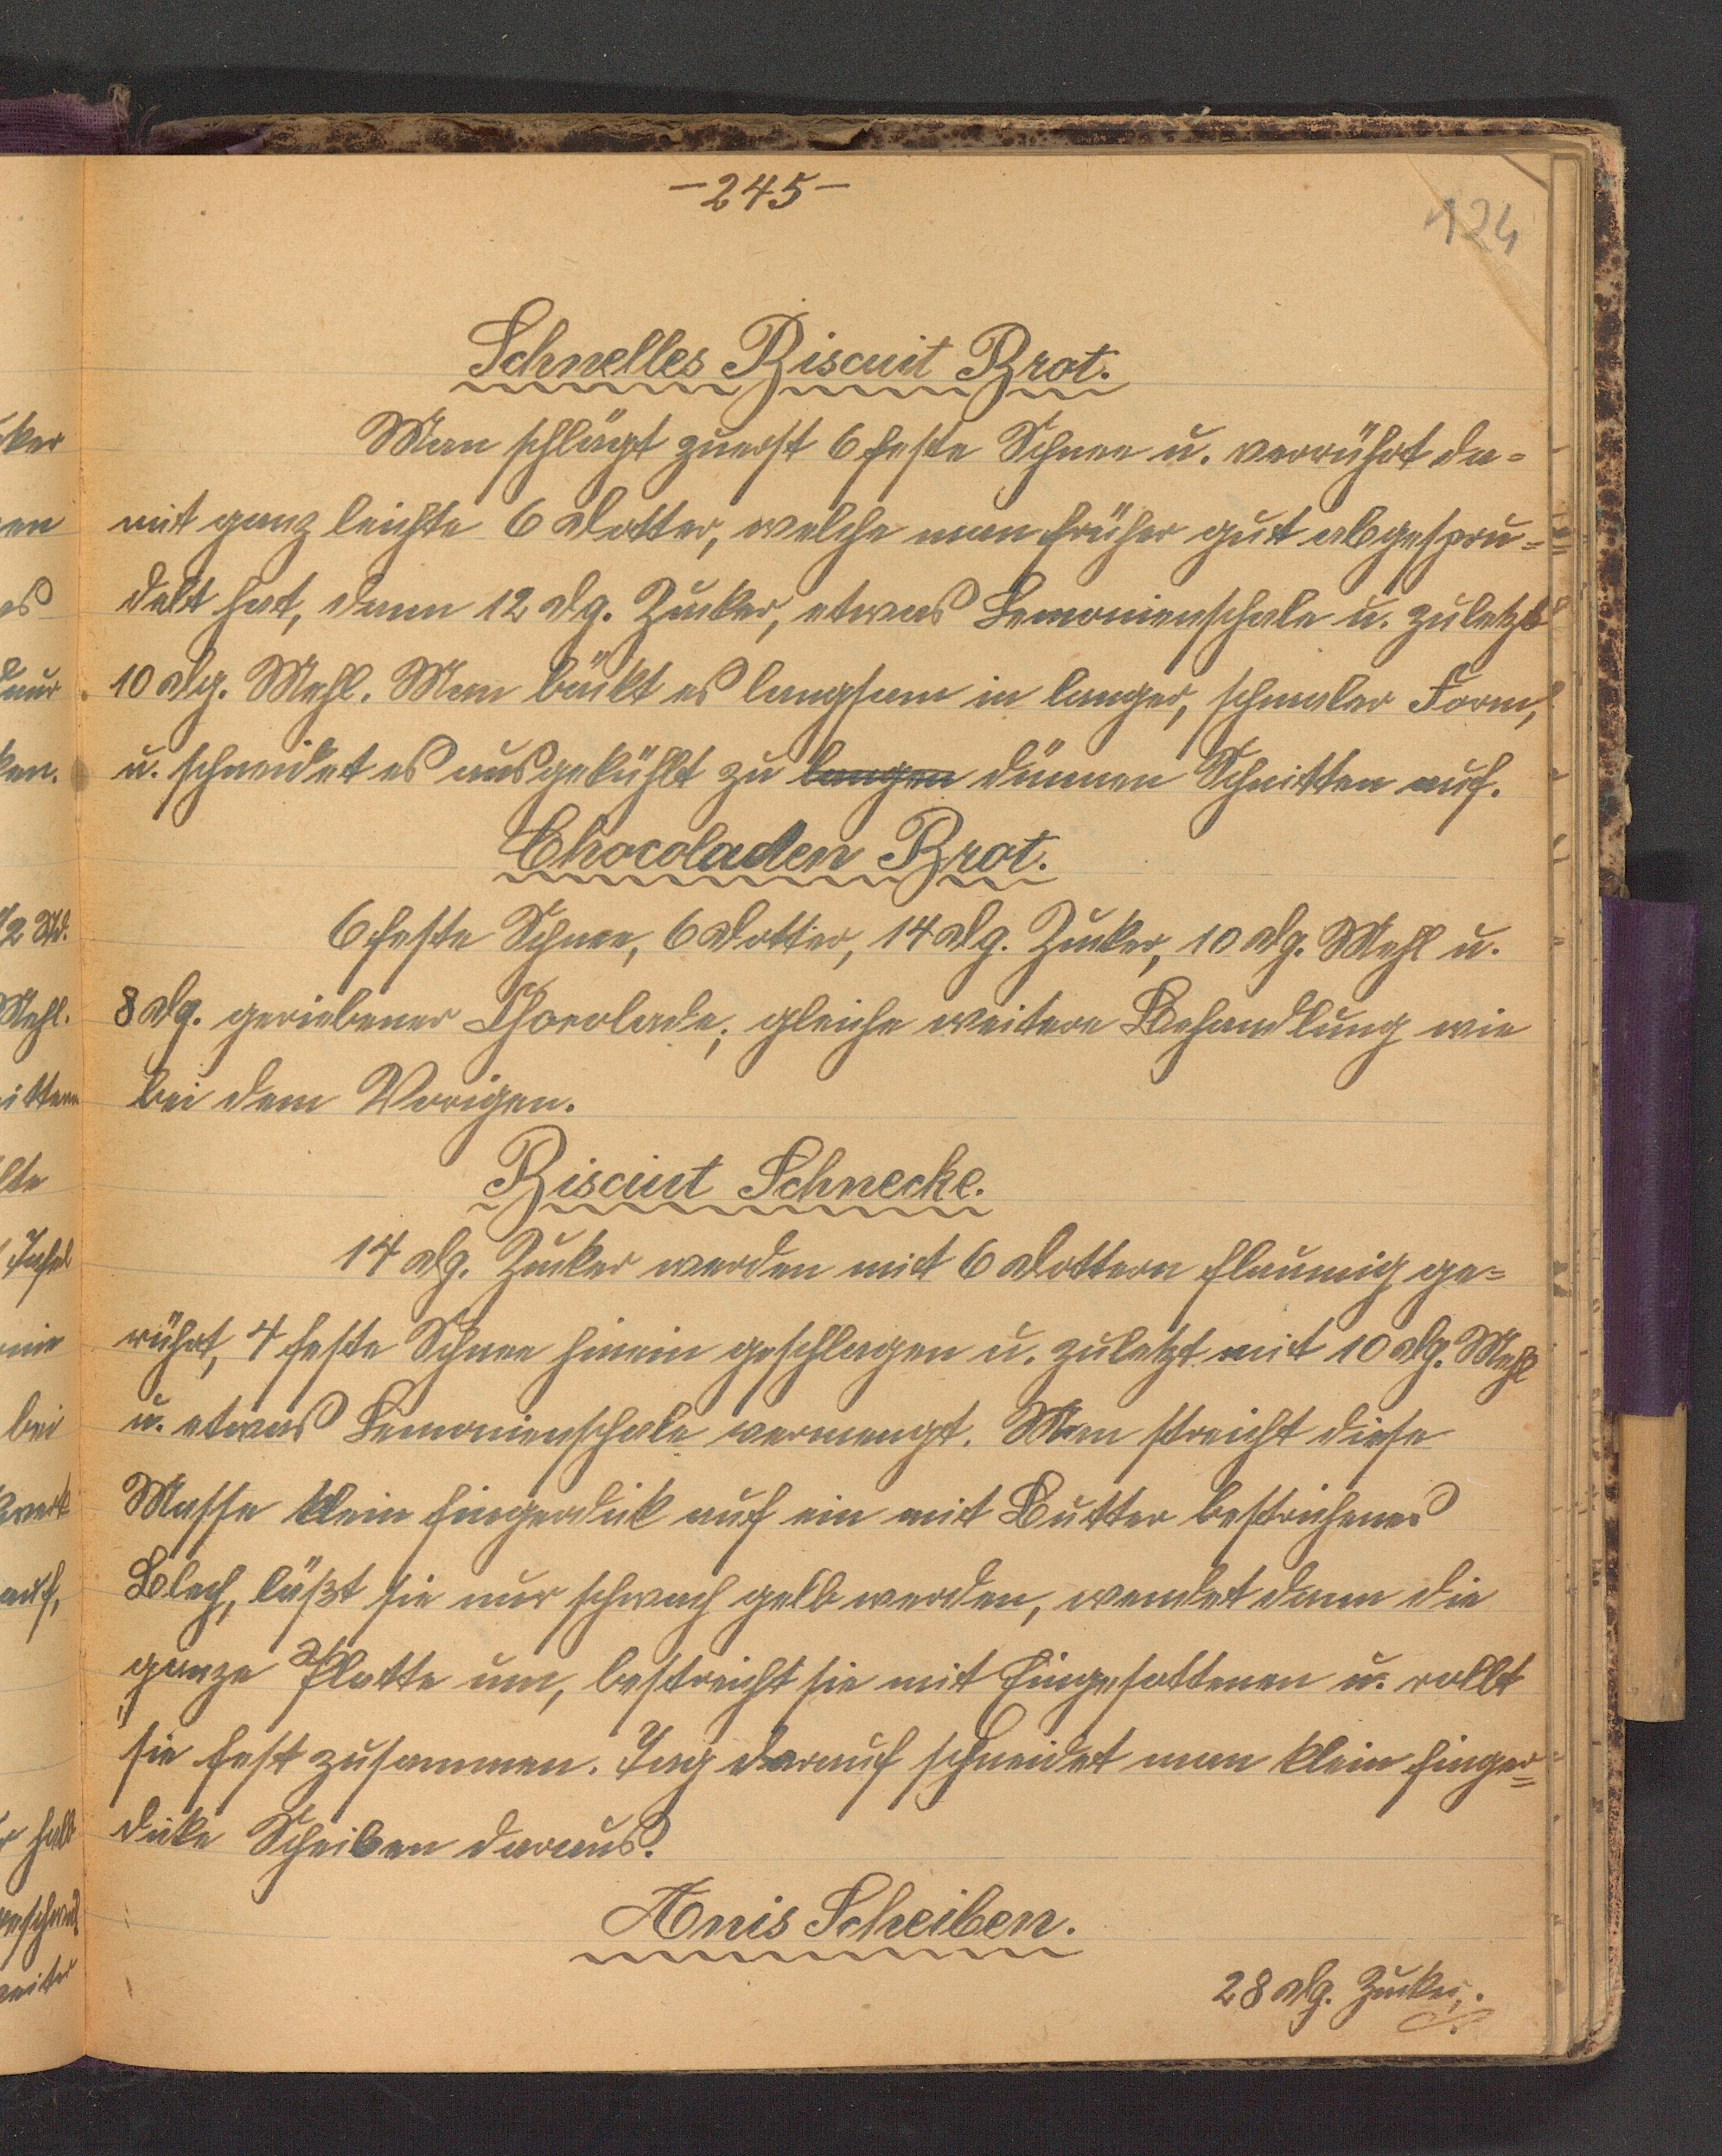 -245-
124
Schnelles Biscuit Brot.
Man schlägt zuerst 6 feste Schnee u. verrührt da=
mit ganz leichte 6 Dotter, welche man früher gut abgespru=
delt hat, dann 12 dg. Zucker, etwas Lemonienschale u. zuletzt
10 dg. Mehl. Man bäckt es langsam in langer, schmaler Form,
u. schneidet es ausgekühlt zu langen dünnen Schnitten auf.
Chocoladen Brot.
6 feste Schnee, 6 Dotter, 14 dg. Zucker, 10 dg. Mehl u.
8 dg. geriebener Chocolade; gleiche weitere Behandlung wie
bei dem Vorigen.
Biscuit Schnecke.
14 dg. Zucker werden mit 6 Dottern flaumig ge=
rührt, 4 feste Schnee hinein geschlagen u. zuletzt mit 10 dg. Mehl
u. etwas Lemonienschale vermengt. Man streicht diese
Masse klein fingerdick auf ein mit Butter bestrichenes
Blech, läßt sie nur schwach gelb werden, wendet dann die
ganze Platte um, bestreicht sie mit Eingesottenen u. rollt
sie fest zusammen. Tag darauf schneidet man klein finger=
dicke Scheiben daraus.
Anis Scheiben.
28 dg. Zucker,